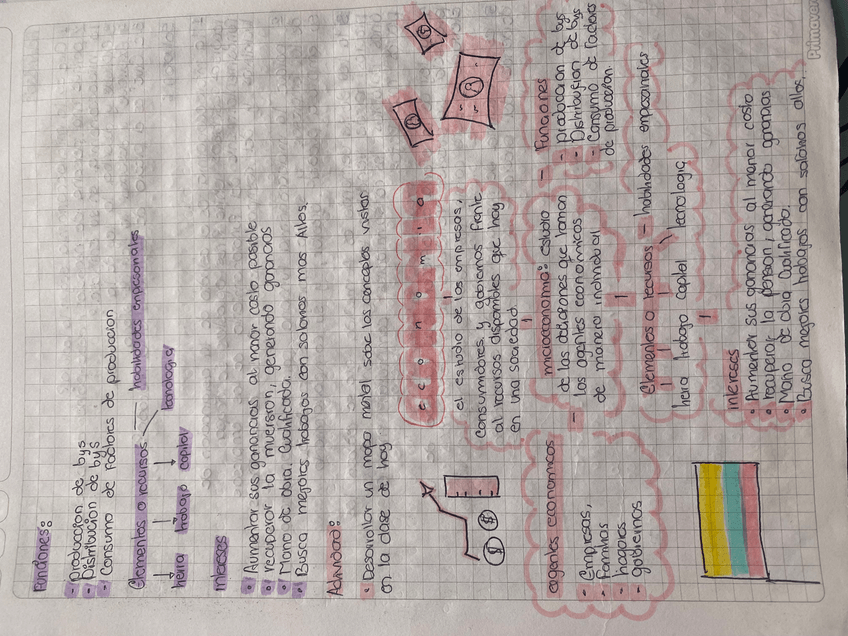 Funciones:
- Producción de bys
- Distribución de bys
- Consumo de factores de producción
Elementos o recursos — habilidades empresariales
tierra trabajo capital tecnologia
Intereses
Aumentar sus ganancias al menor costo posible
recuperar la inversion, generando ganancias
Mano de obra. Cualificada.
Busca mejores trabajos con salarios mas Altos.
Actividad:
• Desarrollar un mapa mental sobre los conceptos vistos
en la clase de hoy
economia
el estudio de las empresas,
Consumidores y gobiernos frente
al recursos disponibles que hay
en una sociedad
agentes economicos
- Empresas,
- Familias
- hogares
- gobiernos
microeconomia: estudio
de las decisiones que toman
los agentes economicos
de manera individual
Funciones
- producción de bys
- Distribucion de bys
- Consumo de Factores
de produccion.
Elementos o recursos — habilidades empresariales
tierra trabajo capital tecnologia
Intereses
• Aumentar sus ganancias al menor costo
• recuperar la , generando ganancias
• Mano de obra Cualificada.
• Busca mejores trabajos con salarios altos
Primavera